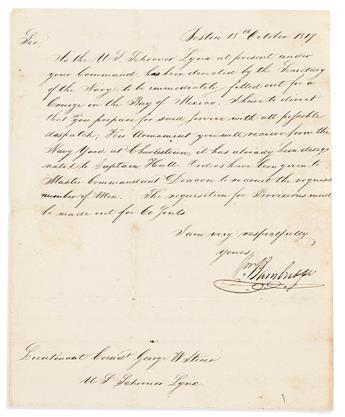 Sir Boston 18th October 1817
As the U.S. Schooner Lynx at present under
your Command, has been directed by the Secretary
of the Navy, to be immediately fitted out for a
Cruize in the Bay of Mexico. I have to direct
that you prepare for said service with all possible
despatch. Her Armament you will receive from the
Navy Yard at Charlestown, it has already been desig
nated to Captain Hull. Orders have been given to
Master Commandant Deacon to recruit the requisite
number of Men. The requisition for Provisions must
be made out for 60 Souls.
I am very respectfully
yours,
Wm Bainbridge
Lieutenant Comdt George W Storer
U S Schooner Lynx